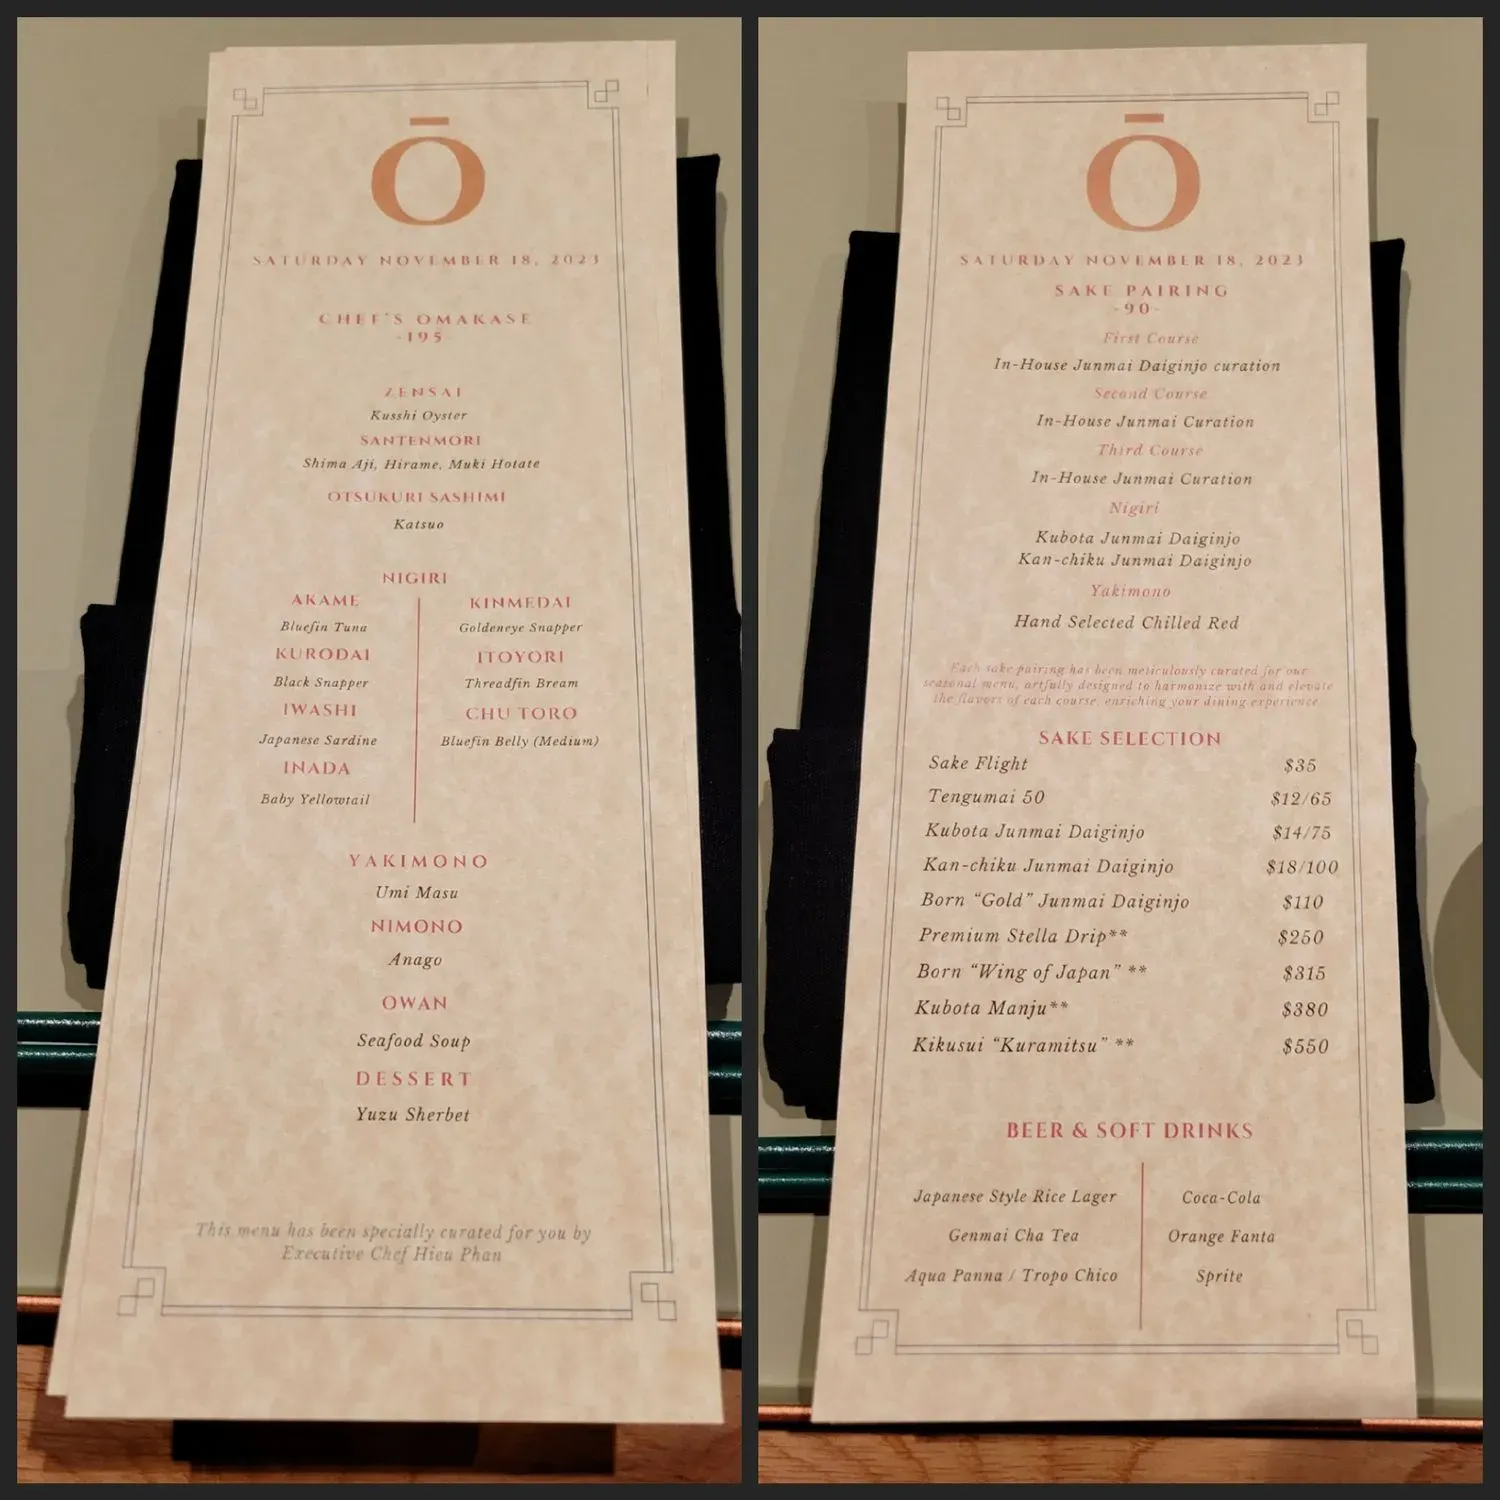 Ō
SATURDAY NOVEMBER 18, 2023
CHEF'S OMAKASE
-195-
ZENSAI
Kusshi Oyster
SANTENMORI
Shima Aji, Hirame, Muki Hotate
OTSUKURI SASHIMI
Katsuo
NIGIRI
AKAME
Bluefin Tuna
KURODAI
Black Snapper
IWASHI
Japanese Sardine
INADA
Baby Yellowtail
KINMEDAI
Goldeneye Snapper
ITOYORI
Threadfin Bream
CHU TORO
Bluefin Belly (Medium)
YAKIMONO
Umi Masu
NIMONO
Anago
OWAN
Seafood Soup
DESSERT
Yuzu Sherbet
This menu has been specially curated for you by
Executive Chef Hieu Phan
Ō
SATURDAY NOVEMBER 18, 2023
SAKE PAIRING
-90-
First Course
In-House Junmai Daiginjo curation
Second Course
In-House Junmai Curation
Third Course
In-House Junmai Curation
Nigiri
Kubota Junmai Daiginjo
Kan-chiku Junmai Daiginjo
Yakimono
Hand Selected Chilled Red
Each sake pairing has been meticulously curated for our
seasonal menu, artfully designed to harmonize with and elevate
the flavors of each course, enriching your dining experience
SAKE SELECTION
Sake Flight $35
Tengumai 50 $12/65
Kubota Junmai Daiginjo $14/75
Kan-chiku Junmai Daiginjo $18/100
Born “Gold” Junmai Daiginjo $110
Premium Stella Drip** $250
Born “Wing of Japan” ** $315
Kubota Manju** $380
Kikusui “Kuramitsu” ** $550
BEER & SOFT DRINKS
Japanese Style Rice Lager
Genmai Cha Tea
Aqua Panna / Tropo Chico
Coca-Cola
Orange Fanta
Sprite